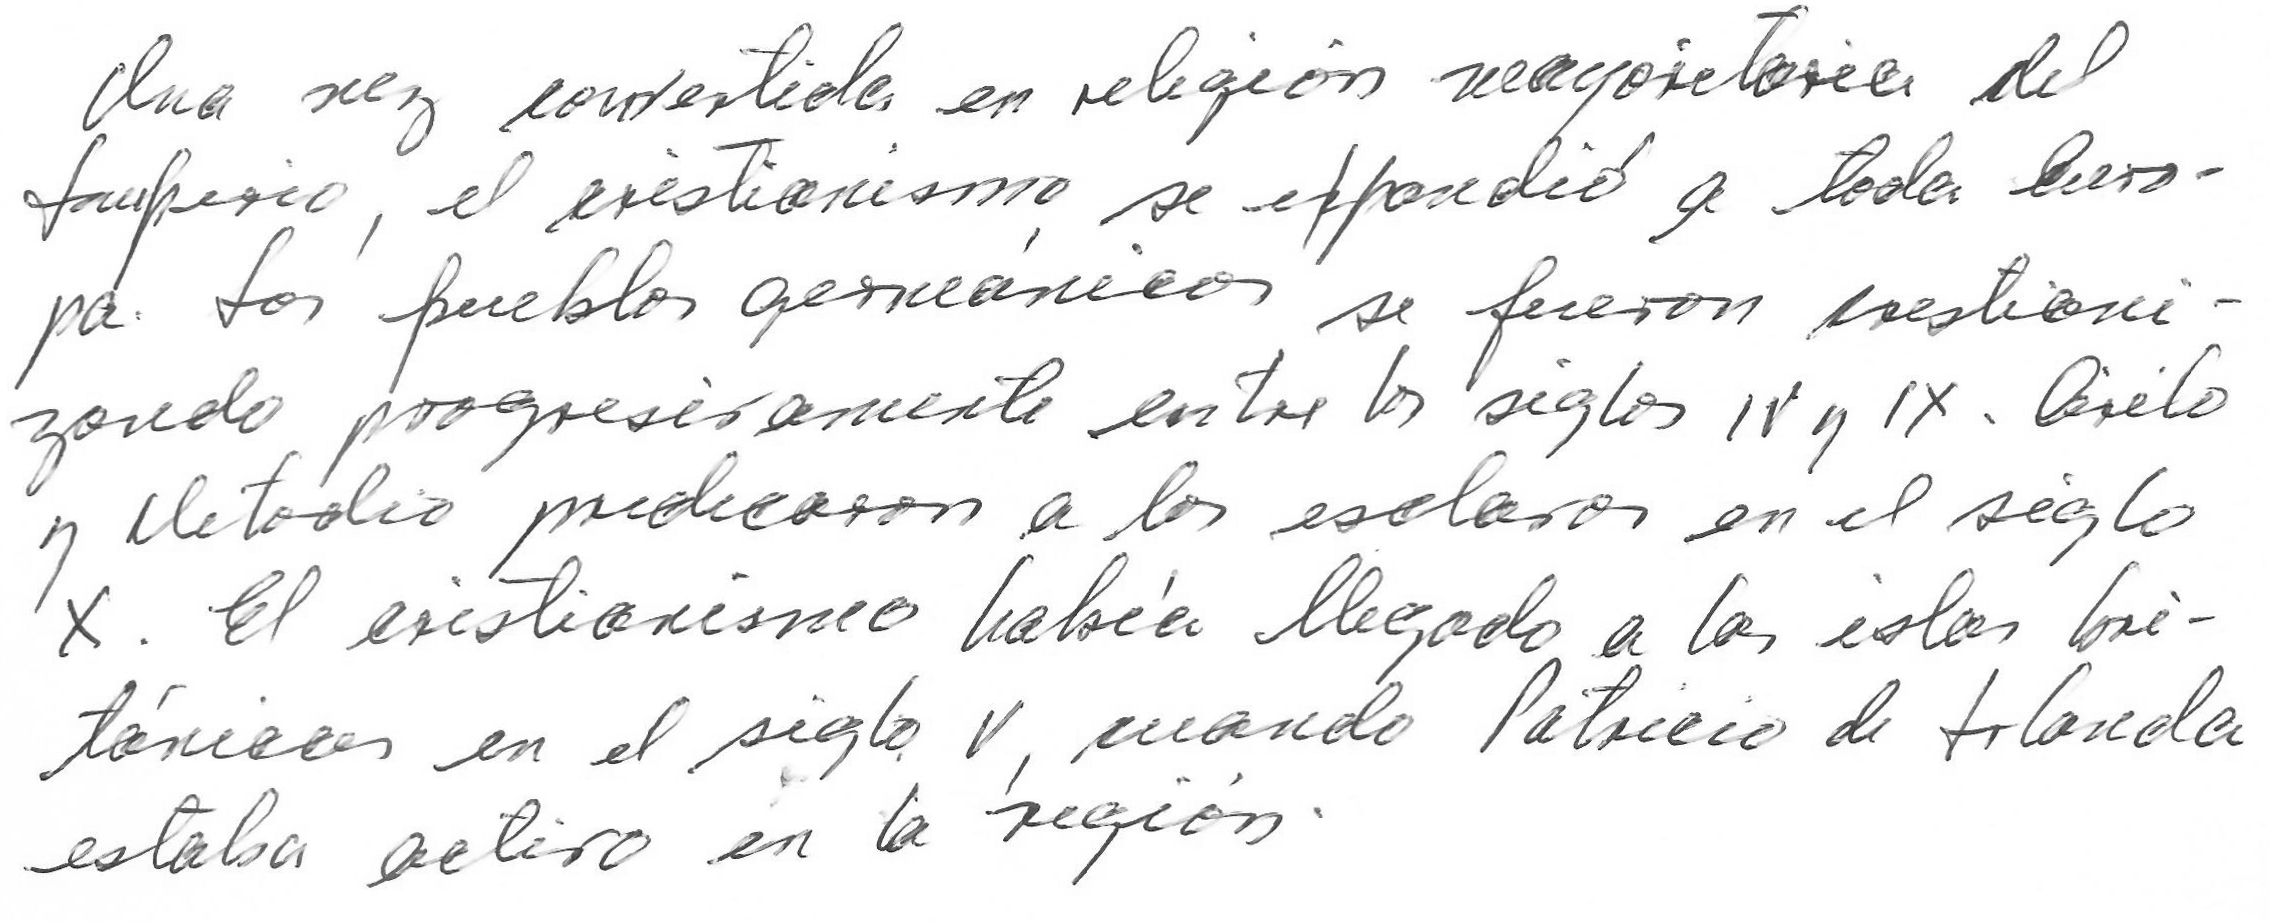 Una vez convertida en religión mayoritaria del
Imperio, el cristianismo se expandió a toda Euro-
pa. Los pueblos germánicos se fueron cristiani-
zando progresivamente entre los siglos IV y IX. Cirilo
y Metodio predicaron a los esclavos en el siglo
X. El cristianismo había llegado a las islas bri-
tánicas en el siglo V, cuando Patricio de Irlanda
estaba activo en la región.